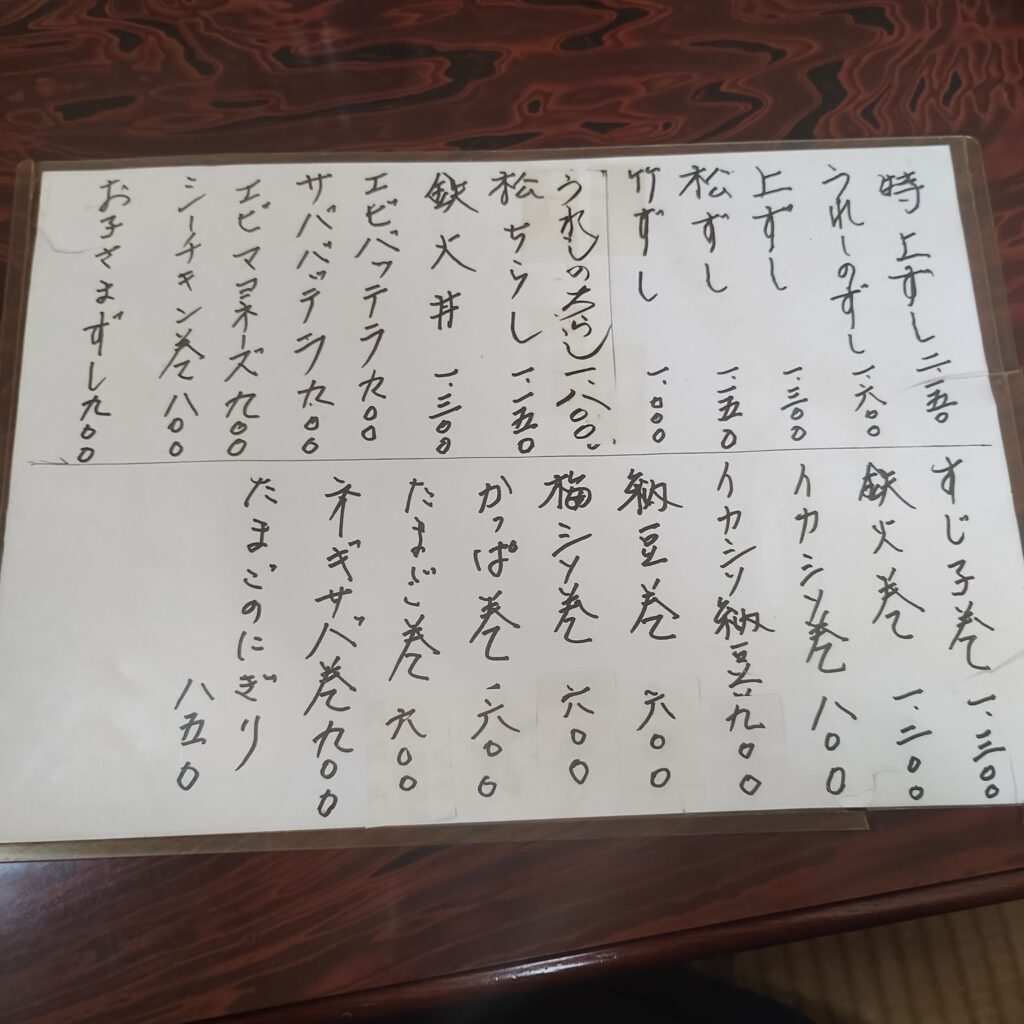 時上ずし 二.一五〇
うれしのずし 一.六〇〇
上ずし 一.三〇〇
松ずし 一.一五〇
竹ずし 一.〇〇〇
うれしの 一.八〇〇
松ちらし 一.一五〇
鉄火丼 一.三〇〇
エビバッテラ 九〇〇
サババッテラ 九〇〇
エビマヨネーズ 九〇〇
シーチキン巻 八〇〇
お子さまずし 九〇〇
すじ子巻 一.三〇〇
鉄火巻 一.二〇〇
イカシソ巻 八〇〇
イカシソ納豆 九〇〇
納豆巻 六〇〇
梅シソ巻 六〇〇
かっぱ巻 六〇〇
たまご巻 六〇〇
ネギサバ巻 九〇〇
たまごのにぎり
八五〇